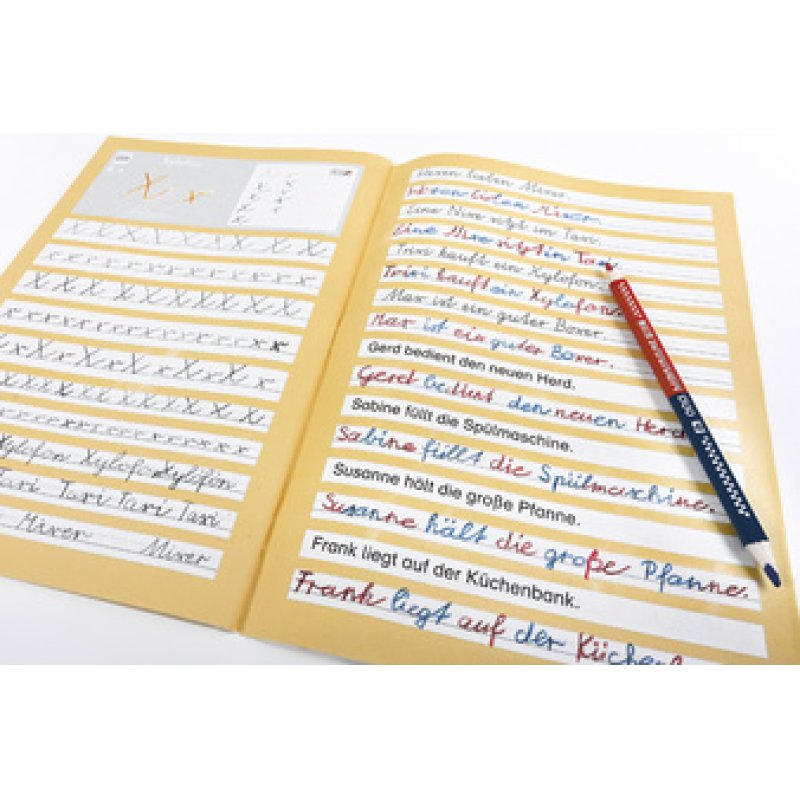 Xylofon
X x
X X X X X X X X X
x x x x x x x x x x x x
X X X X X X X X X X
x x x x x x x x x x x x x x
x X x X x X x X x X x
x x x x x x x x x x x x
Xylofon Xylofon Xylofon
Taxi Taxi Taxi Taxi
Mixer Mixer
Hexen lieben Mixer.
Hexen lieben Mixer.
Eine Nixe sitzt im Taxi.
Eine Nixe sitzt im Taxi
Trixi kauft ein Xylofon.
Trixi kauft ein Xylofon.
Max ist ein guter Boxer.
Max ist ein guter Boxer.
Gerd bedient den neuen Herd.
Gerd bedient den neuen Herd
Sabine füllt die Spülmaschine.
Sabine füllt die Spülmaschine.
Susanne hält die große Pfanne.
Susanne hält die große Pfanne.
Frank liegt auf der Küchenbank.
Frank liegt auf der Küchenb